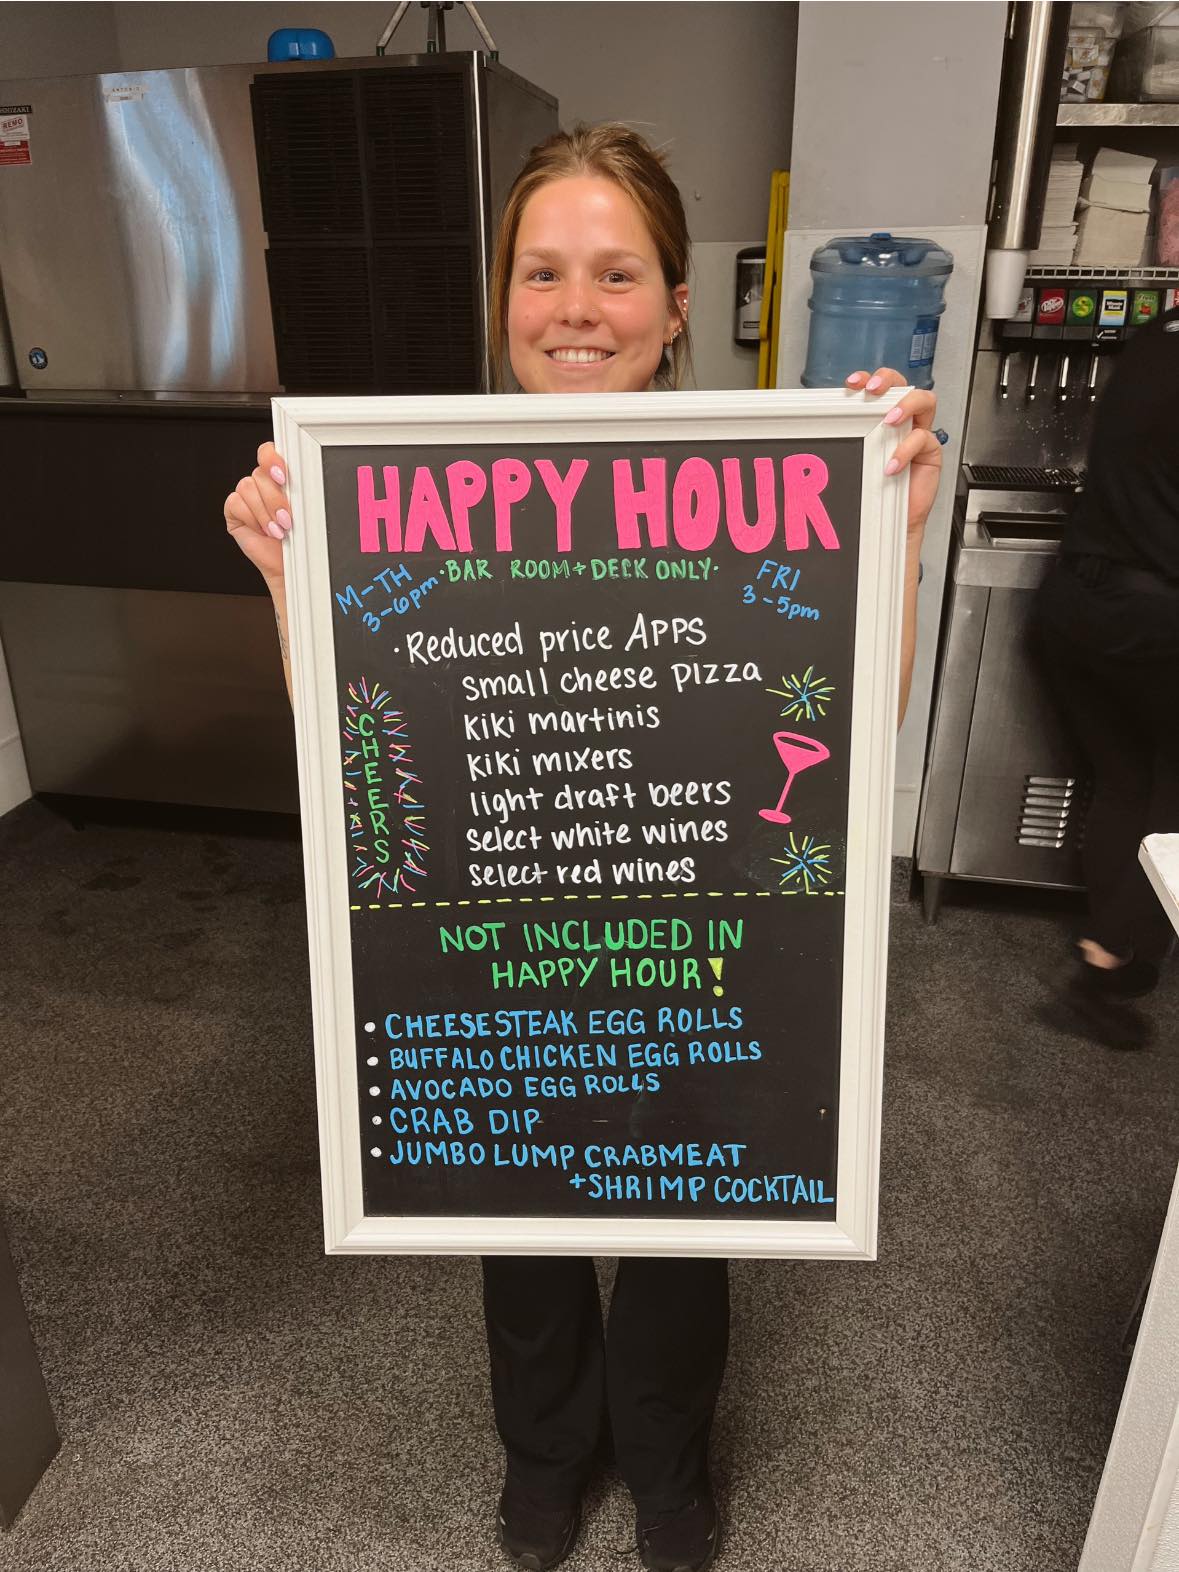 HAPPY HOUR
·BAR ROOM + DECK ONLY·
M-TH
3-6pm
FRI
3-5pm
·Reduced price APPS
small cheese pizza
kiki martinis
kiki mixers
light draft beers
select white wines
select red wines
CHEERS
NOT INCLUDED IN
HAPPY HOUR!
• CHEESESTEAK EGG ROLLS
• BUFFALO CHICKEN EGG ROLLS
• AVOCADO EGG ROLLS
• CRAB DIP
• JUMBO LUMP CRABMEAT
+SHRIMP COCKTAIL